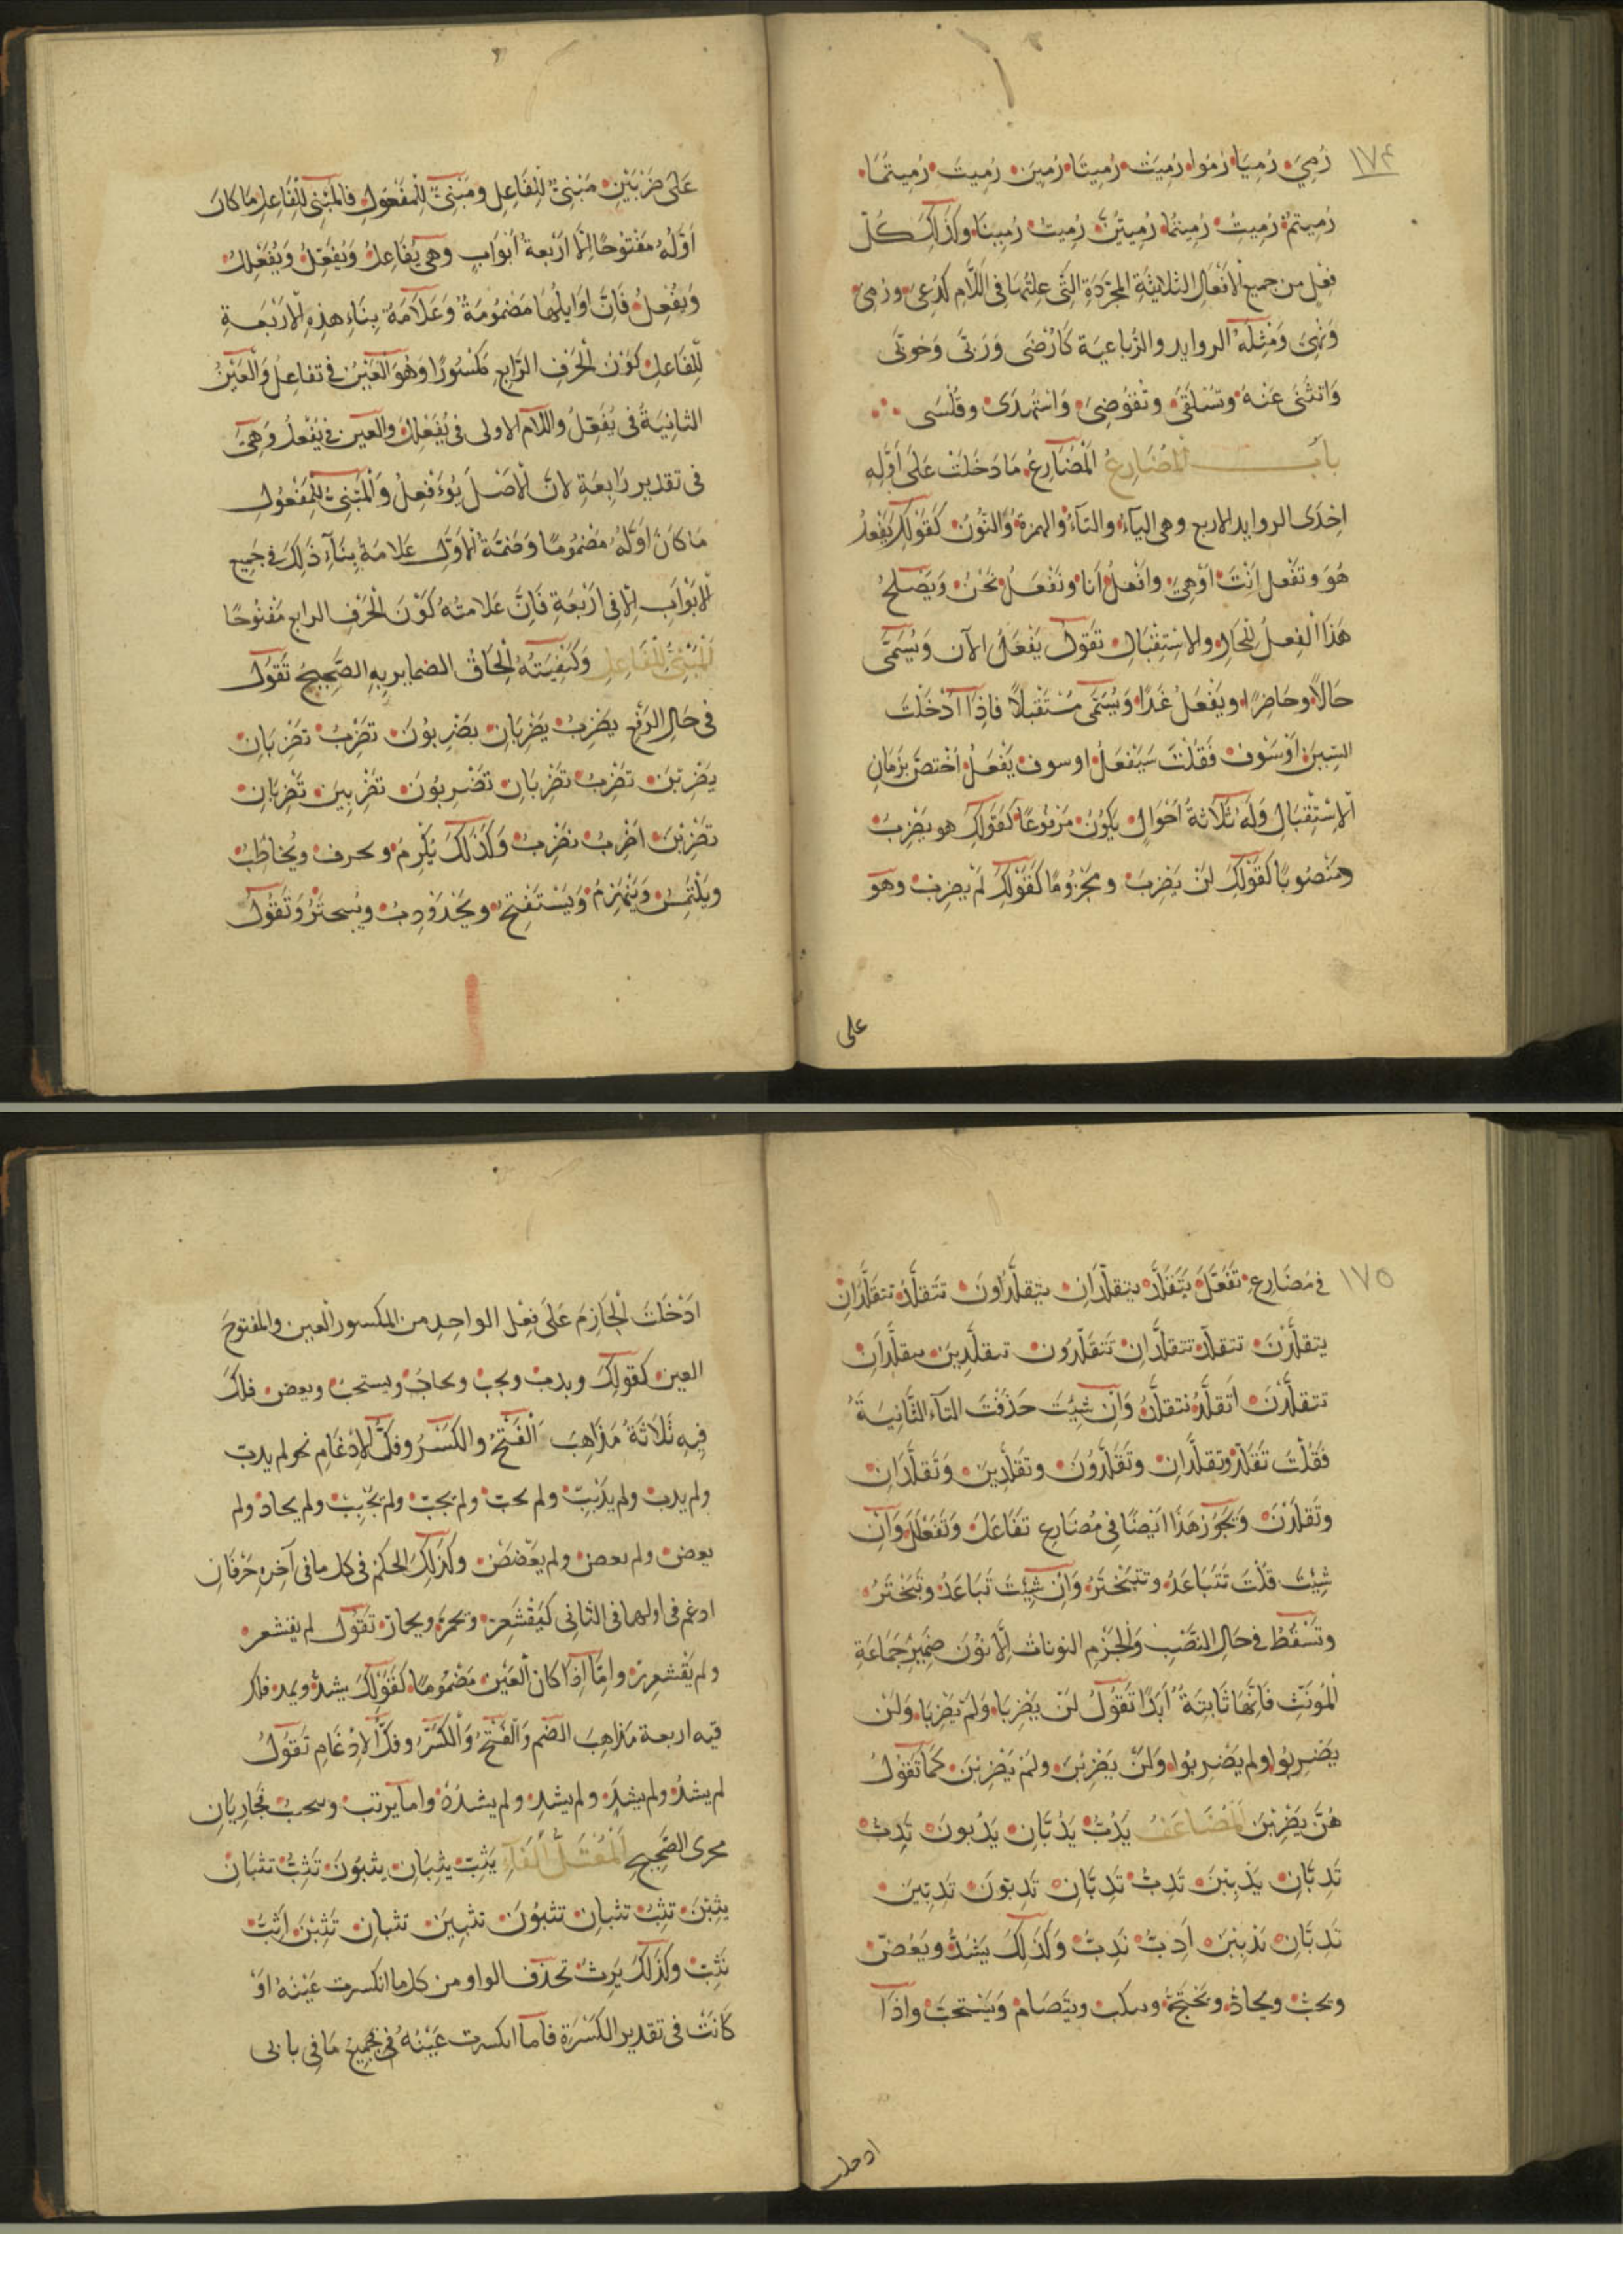 ١٧٤
رُمِيَ رُمِيَا رُمُوا رُمِيَتْ رُمِيَتَا رُمِينَ رُمِيتَ رُمِيتُمَا
رُمِيتُمْ رُمِيتِ رُمِيتُمَا رُمِيتُنَّ رُمِيتُ رُمِينَا وَكَذَلِكَ كُلّ
فِعْلٍ من جميع الْأَفْعَالِ الثلاثيّةِ المجرّدَةِ الَّتى عِلتُهَا فى اللَّامِ كدُعِىَ ورُمِىَ
وَنُهِىَ وَمِثلُهُ الروايد والرُّباعيّة كَأُرْضَى وَرَبَّى وَحُوبَى
وَانثُنَى عَنْهُ وتُسُلقى وتُقوُضِىَ وَاستُهدَىَ وقُلْسَى
بابــــ المُضَارِعُ المُضَارِعُ مَا دَخَلَتْ عَلَى أَوَّلِهِ
احِدَى الروايد الاربع وهى اليآءُ والتآءُ والهمزةُ وَالنُّونُ كَقَوْلِكَ يَفْعلُ
هُوَ وتفْعل انْتَ اَوْهِىَ وافْعلُ اَنا ونَفْعَلُ نَحْنُ وَيَصْلحُ
هَذَا الفِعلُ للحالِ والاستِقْبَالِ تقوُل يَفْعَلُ الآن وَيُسَمَّى
حَالاً وحَاضِرًا ويَفْعَلُ غَدًا وَيُسَمَّى مسْتَقْبلاً فاِذَا اَدْخَلْتَ
السِّينَ اَوْسَوْفَ فَقُلْتَ سَيَفْعَلُ او سوف يَفْعَلُ اخْتصَّ بزَمَانِ
الاسْتِقْبَالِ وَلَهُ ثَلاثةُ اَحْوَالٍ يَكُونُ مَرْفوُعًا كقَوْلِكَ هو يَضْرِبُ
ومَنْصُوبًا كَقَوْلِكَ لَنْ يَضرِبَ ومجزُومًا كَقَوْلِكَ لَمْ يضرِبْ وهو
على
عَلَى ضَرْبَيْنِ مَبْنِىٌّ للفَاعِلِ ومَبْنِىٌّ لِلْمَفْعُولِ فالمَبْنِى لِلْفَاعِلِ مَا كانَ
اَوَّلُهُ مَفْتوُحًا اِلَّا اَرْبَعةُ اَبْوَابٍ وهى يُفَاعِلُ وَيُفَعِّلُ وَيُفَعْلِلُ
وَيُفْعِلُ فَاِنَّ اَوَايلَهَا مَضْمُومَةٌ وَعَلَامَةُ بِنَاءِ هذِهِ الْاَرْبَعَةِ
لِلفَاعِلِ كَوْنُ الْحَرْفِ الرَّابِعِ مَكْسُورًا وَهُوَ العَيْنُ فى تفاعِلُ وَالْعَيْنُ
الثانِيَةُ فى يُفَعِّلُ واللام الاولى فى يُفَعْلِلُ والعين فى يُفْعِلُ وَهِىَ
فى تقدير رَابِعَةٍ لانَّ الاَصْلَ يُوَءَفْعِلُ وَالْمَبْنِىُّ للمَفْعُولِ
مَا كانَ اَوَّلُهُ مَضْمُومًا وَضَمَّةُ الاَوَّلِ عَلامَةُ بِنَآءِ ذَلِكَ فى جَمِيع
الاَبْوَابِ اِلّا فى اَرْبَعَةٍ فَاِنَّ عَلامتُهُ كَوْنُ الْحَرْفِ الرابع مَفتُوحًا
المَبْنِىُّ لِلْفَاعِلِ وَكَيْفِيَتهُ الْحَاقُ الضماير بِهِ الصَّحِيحُ تَقُولُ
فى حَالِ الرَّفْعِ يَضْرِبُ يَضْرِبَانِ يَضْرِبُونَ تَضْرِبُ تَضْرِبَانِ
يَضْرِبْنَ تَضْرِبُ تَضْرِبَانِ تَضْرِبُونَ تَضْرِبِينَ تَضْرِبَانِ
تَضْرِبْنَ اَضْرِبُ نَضْرِبُ وَكَذَلكَ يكْرِمُ ويحرف ويُخاطِبُ
ويَلْتَمِسُ وَيَنْهَزِمُ وَيَسْتَفْتِحُ ويَحْدَوْدِبُ ويُسحتَرُ وَتَقُولُ
١٧٥
فى مُضَارِع تَفَعَّلَ يَتَقَلَّدُ يَتقلَّدَانِ يتقلَّدُونَ تَتَقلَّدُ تتقَلَّدَانِ
يتقلَّدْنَ تتقلّدُ تتقلَّدَانِ تَتَقلَّدُونَ تتقلَّدِينَ تتقلَّدَانِ
تتقلَّدْنَ اَتَقلَّدُ نتقلَّدُ وَاِنْ شِئْتَ حَذَفْتَ التآءَ الثَّانِيَةَ
فَقُلْتَ تَقَلَّدُ وتَقلَّدانِ وتَقَلَّدُونَ وتقَلَّدِينَ وَتَقَلَّدَانِ
وتَقَلَّدْنَ وَيَجُوزُ هَذَا ايْضًا فى مُضَارِعِ تفَاعَلَ وَتَفَعْلَلَ وَاِنْ
شِئْتَ قُلْتَ تَتَبَاعَدُ وتتبَخْتَرُ وَاِنْ شِئْتَ تَبَاعَدُ وتَبَخْتَرُ
وتَسْقُطُ فى حَالِ النَّصْبِ وَالْجَزْمِ النونات اِلَّا نُونَ ضَمِيرِ جَمَاعَةِ
المُوَنَّثِ فَاِنَّهَا ثَابِتَةٌ اَبَدًا تَقُولُ لَنْ يَضْرِبَا وَلَمْ يَضْرِبَا وَلَنْ
يَضْرِبُوا ولم يَضْرِبُوا وَلَنْ يَضْرِبْنَ ولَمْ يَضْرِبْنَ كَمَا تَقُولُ
هُنَّ يَضْرِبْنَ المُضَاعَفُ يَدُبُّ يَدُبَّانِ يَدُبّونَ تَدِبُّ
تَدِبَّانِ يَدْبِبْنَ تَدِبُّ تَدِبَّانِ تَدِبّونَ تَدِبّينَ
تَدِبَّانِ تَدْبِبْنَ اَدِبُّ نَدِبُّ وَكَذَلِكَ يَشُدُّ ويَعَضُّ
ويحبُّ ويحادُّ ويَحْتَجُّ وينكب ويتَصَامُّ وَيَسْتَحِبُّ واِذَا
ادخلت
ادْخَلْتَ الْجَازِمَ عَلَى فِعْلِ الواحِدِ من المكسور العين والمفتوحِ
العين كَقولِكَ ويدبُّ ويحبُّ ويحابُّ ويستحبُّ ويعض فلكَ
فِيهِ ثَلَاثَةُ مَذَاهِبَ الْفَتْحُ والكَسْرُ وفكُّ الاِدْغَامِ نحو لم يدبَّ
ولم يدبِّ ولم يَدْبِبْ ولم يحبَّ ولم يحبِّ ولم يحْبِبْ ولم يحادَّ ولم
يعضَّ ولم يعضِّ ولم يَعْضَضْ وكَذَلِكَ الحكم فى كل ما فى آخِرِهِ حَرْفَانِ
ادغم فى اولهما فى الثانى كَيَقْشَعِرُّ ويَحْمَرُّ ويحمارُّ تقول لم يقشعر
ولم يَقْشعرِرْ واِمَّا اِذَا كان العَيْن مَضْمُومًا كَقَوْلِكَ يشدُّ ويمدُّ فلك
فيه اربعة مذاهِبَ الضم وَالْفَتْحُ وَالْكَسْرُ وفكُّ الاِدْغَامِ تَقولُ
لم يشدُّ ولم يشدَّ ولم يشدِّ ولم يشدُدْ واما يرتب وسحب فجارِيَانِ
مجرى الصَّحِيحِ المُعْتَلُّ الفَآءِ يَثِبُ يَثِبَانِ يثِبُونَ تَثِبُ تثبَانِ
يَثِبْنَ تثِبُ تثبانِ تثِبُونَ تثبِينَ تثبانِ تَثِبْنَ اَثِبُ
نَثِبُ وكَذلكَ يَرِثُ تحذف الواو من كل ما انكسرت عَيْنهُ اَوْ
كَانَتْ فى تقدير الكَسْرَةِ فاما انكسرت عَيْنهُ فى جميع مَا فى بابى